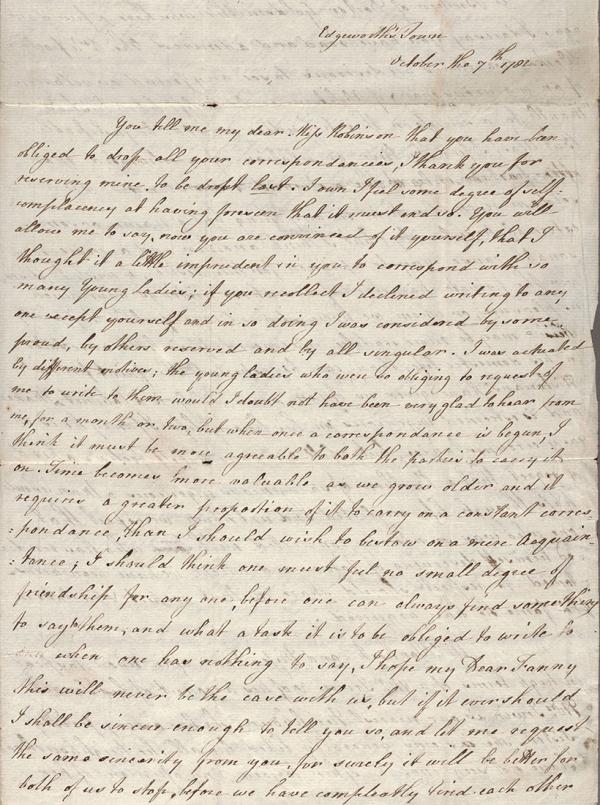 Edgeworth's Town
October the 7th 1782
You tell me my dear Miss Robinson that you have been
obliged to drop all your correspondancies, I thank you for
reserving mine to be dropt last. I own I feel some degree of self-
complacency at having foreseen that it must end so. You will
allow me to say, now you are convinced of it yourself, that I
thought it a little imprudent in you to correspond with so
many Young ladies; if you recollect I declined writing to any
one except yourself and in so doing I was considered by some
proud, by others reserved and by all singular. I was actuated
by different motives; the young ladies who were so obliging to request of
me to write to them would I doubt not have been very glad to hear from
me, for a month or two, but when once a correspondance is begun, I
think it must be more agreeable to both the parties to carry it
on. Time becomes more valuable as we grow older and it
requires a greater proportion of it to carry on a constant corres
:pondance, than I should wish to bestow on a mere Acquain-
:tance; I should think one must feel no small degree of
friendship for any one, before one can always find something
to say to them, and what a task it is to be obliged to write to
when one has nothing to say, I hope my Dear Fanny
this will never be the case with us, but if it ever should
I shall be sincere enough to tell you so, and let me request
the same sincerity from you, for surely it will be better for
both of us to stop, before we have compleatly tired each other